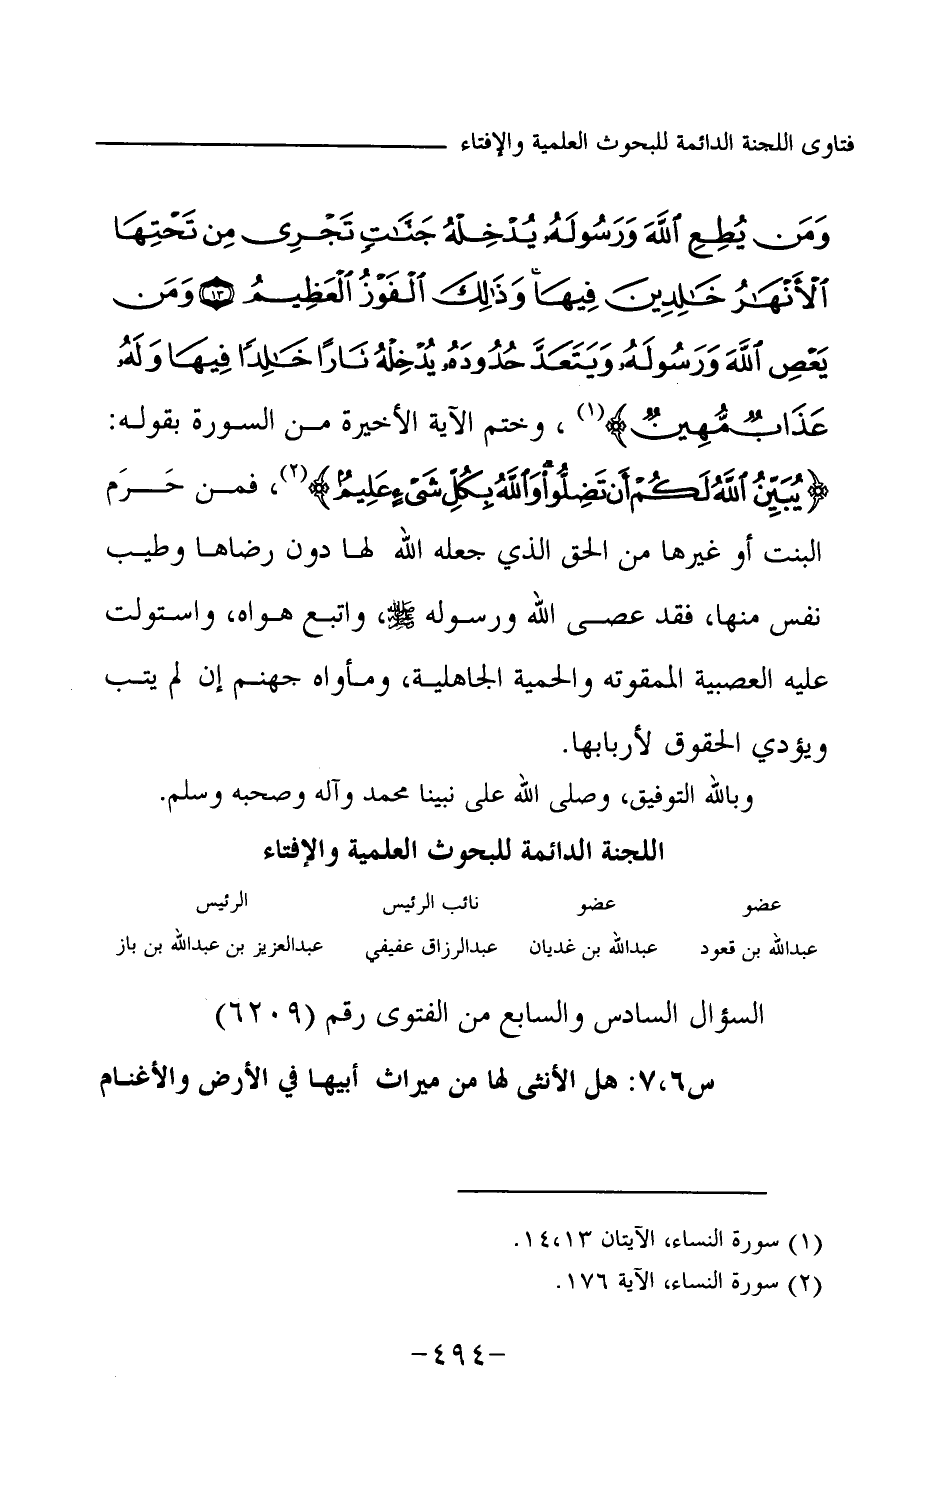 فتاوى اللجنة الدائمة للبحوث العلمية والإفتاء
وَمَن يُطِعِ ٱللَّهَ وَرَسُولَهُۥ يُدۡخِلۡهُ جَنَّٰتٖ تَجۡرِي مِن تَحۡتِهَا
ٱلۡأَنۡهَٰرُ خَٰلِدِينَ فِيهَاۚ وَذَٰلِكَ ٱلۡفَوۡزُ ٱلۡعَظِيمُ ١٣ وَمَن
يَعۡصِ ٱللَّهَ وَرَسُولَهُۥ وَيَتَعَدَّ حُدُودَهُۥ يُدۡخِلۡهُ نَارًا خَٰلِدٗا فِيهَا وَلَهُۥ
عَذَابٞ مُّهِينٞ﴾(١) ، وختم الآية الأخيرة من السورة بقوله:
﴿يُبَيِّنُ ٱللَّهُ لَكُمۡ أَن تَضِلُّواْۗ وَٱللَّهُ بِكُلِّ شَيۡءٍ عَلِيمُۢ﴾(٢)، فمن حَرَم
البنت أو غيرها من الحق الذي جعله الله لها دون رضاها وطيب
نفس منها، فقد عصى الله ورسوله ﷺ، واتبع هواه، واستولت
عليه العصبية الممقوته والحمية الجاهلية، ومأواه جهنم إن لم يتب
ويؤدي الحقوق لأربابها.
وبالله التوفيق، وصلى الله على نبينا محمد وآله وصحبه وسلم.
اللجنة الدائمة للبحوث العلمية والإفتاء
عضو عضو نائب الرئيس الرئيس
عبدالله بن قعود عبدالله بن غديان عبدالرزاق عفيفي عبدالعزيز بن عبدالله بن باز
السؤال السادس والسابع من الفتوى رقم (٦٢٠٩)
س٧،٦: هل الأنثى لها من ميراث أبيها في الأرض والأغنام
(١) سورة النساء، الآيتان ١٤،١٣.
(٢) سورة النساء، الآية ١٧٦.
-٤٩٤-